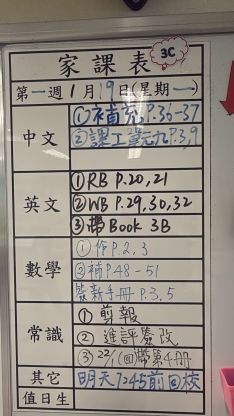 家課表 3C
第一週1月19日(星期一)
中文
①補充P.36-37
②課工單元九P.3,9
英文
①RB P.20,21
②WB P.29,30,32
③帶Book 3B
數學
①作P.2,3
②補P.48-51
簽新手冊P.3,5
常識
①剪報
②進評簽改
③22/1(四)帶第4冊
其它
明天7:45前回校
值日生